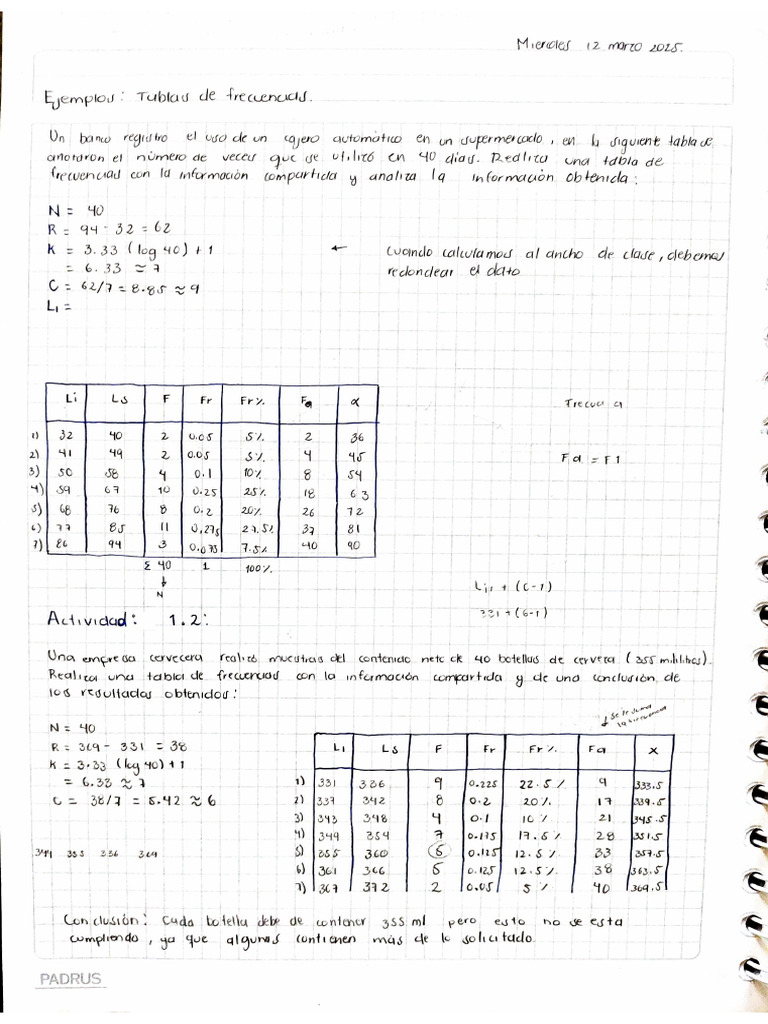 Miercoles 12 marzo 2025.
Ejemplos: Tablas de frecuencias.
Un banco registro el uso de un cajero automático en un supermercado, en la siguiente tabla se
anotaron el número de veces que se utilizó en 40 días. Realiza una tabla de
frecuencias con la información compartida y analiza la información obtenida:
N = 40
R = 94 - 32 = 62
K = 3.33 (log 40) + 1
= 6.33 ≈ 7
C = 62/7 = 8.85 ≈ 9
L1 =
← Cuando calculamos al ancho de clase, debemos
redondear el dato
Li Ls F Fr Fr% Fa x
1) 32 40 2 0.05 5% 2 36
2) 41 49 2 0.05 5% 4 45
3) 50 58 4 0.1 10% 8 54
4) 59 67 10 0.25 25% 18 63
5) 68 76 8 0.2 20% 26 72
6) 77 85 11 0.275 27.5% 37 81
7) 86 94 3 0.075 7.5% 40 90
Σ 40 1 100%
↓
N
Fa = F1
Li1 + (C-1)
331 + (6-1)
Actividad: 1.2:
Una empresa cervecera realizó muestras del contenido neto de 40 botellas de cerveza (355 mililitros).
Realiza una tabla de frecuencias con la información compartida y de una conclusión de
los resultados obtenidos:
N = 40
R = 369 - 331 = 38
K = 3.33 (log 40) + 1
= 6.33 ≈ 7
C = 38/7 = 5.42 ≈ 6
349 355 336 369
↓ Se le suma
la frecuencia
Li Ls F Fr Fr% Fa x
1) 331 336 9 0.225 22.5% 9 333.5
2) 337 342 8 0.2 20% 17 339.5
3) 343 348 4 0.1 10% 21 345.5
4) 349 354 7 0.175 17.5% 28 351.5
5) 355 360 5 0.125 12.5% 33 357.5
6) 361 366 5 0.125 12.5% 38 363.5
7) 367 372 2 0.05 5% 40 369.5
Conclusión: Cada botella debe de contener 355 ml pero esto no se esta
cumpliendo, ya que algunas contienen más de lo solicitado.
PADRUS